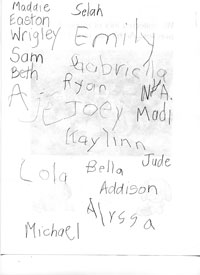 Maddie
Selah
Easton
Wrigley
Emily
Sam
Beth
Gabriella
Ryan
N.A.
AJ
Joey
Madi
Kaylinn
Jude
Lola
Bella
Addison
Alyssa
Michael